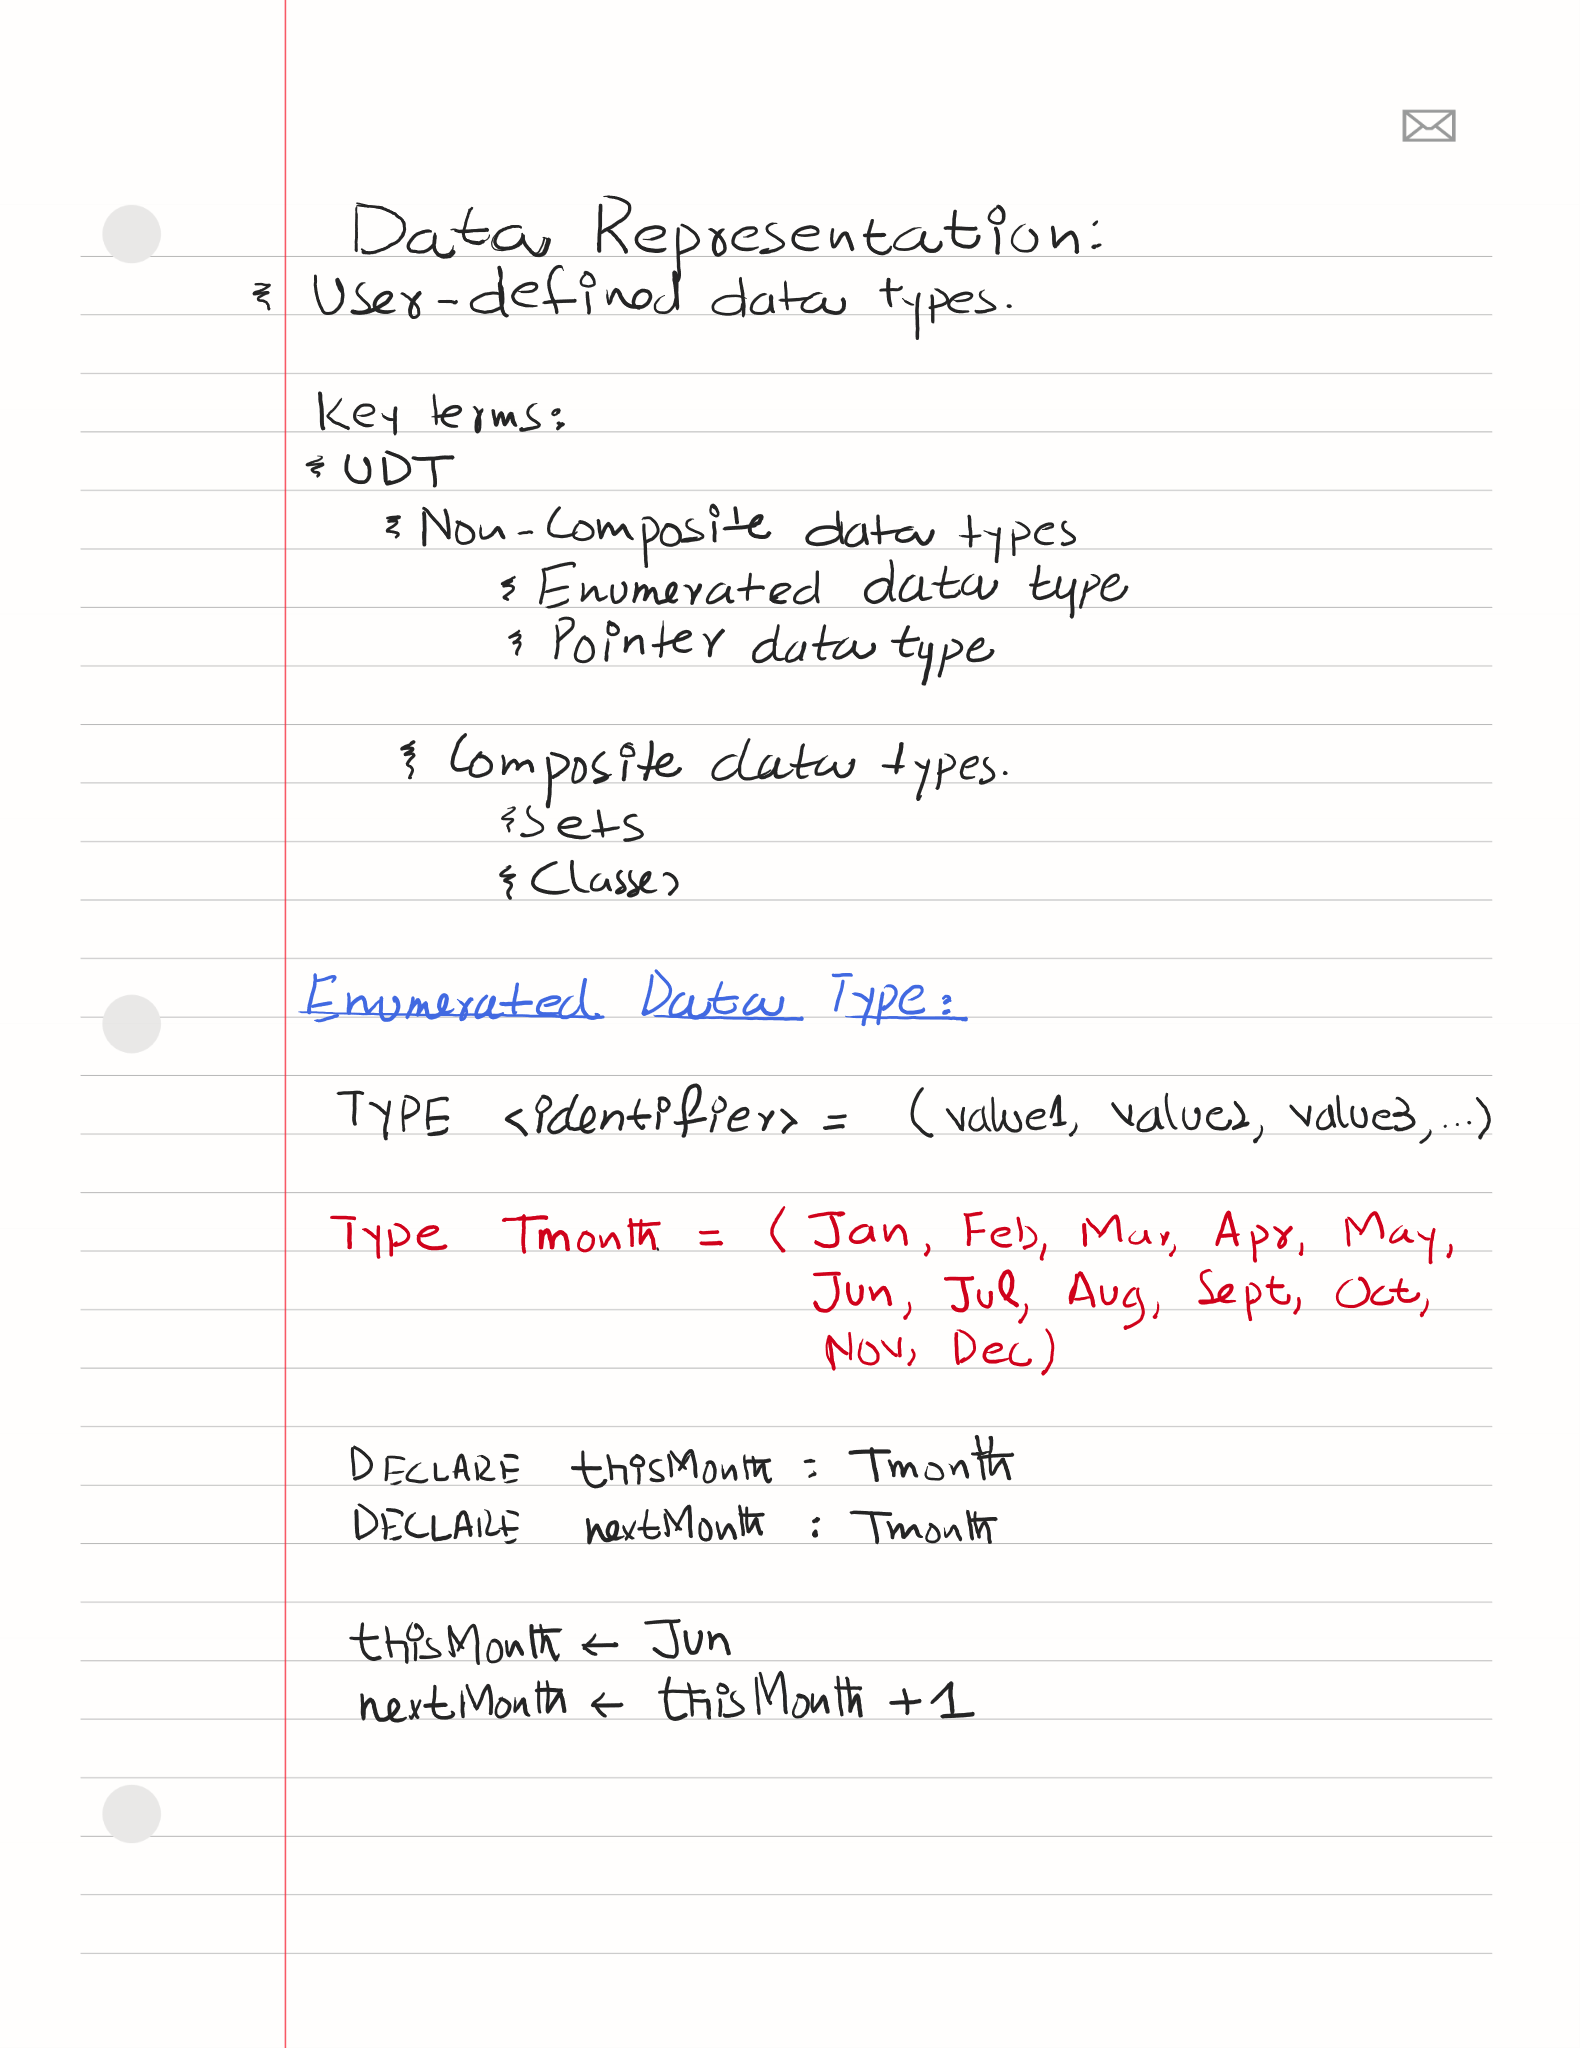 Data Representation:
User-defined data types.
Key terms:
UDT
Non-Composite data types
Enumerated data type
Pointer data type
Composite data types.
Sets
Classes
Enumerated Data Type:
TYPE <identifier> = (value1, value2, value3, ...)
Type Tmonth = (Jan, Feb, Mar, Apr, May,
Jun, Jul, Aug, Sept, Oct,
Nov, Dec)
DECLARE thisMonth : Tmonth
DECLARE nextMonth : Tmonth
thisMonth ← Jun
nextMonth ← thisMonth + 1